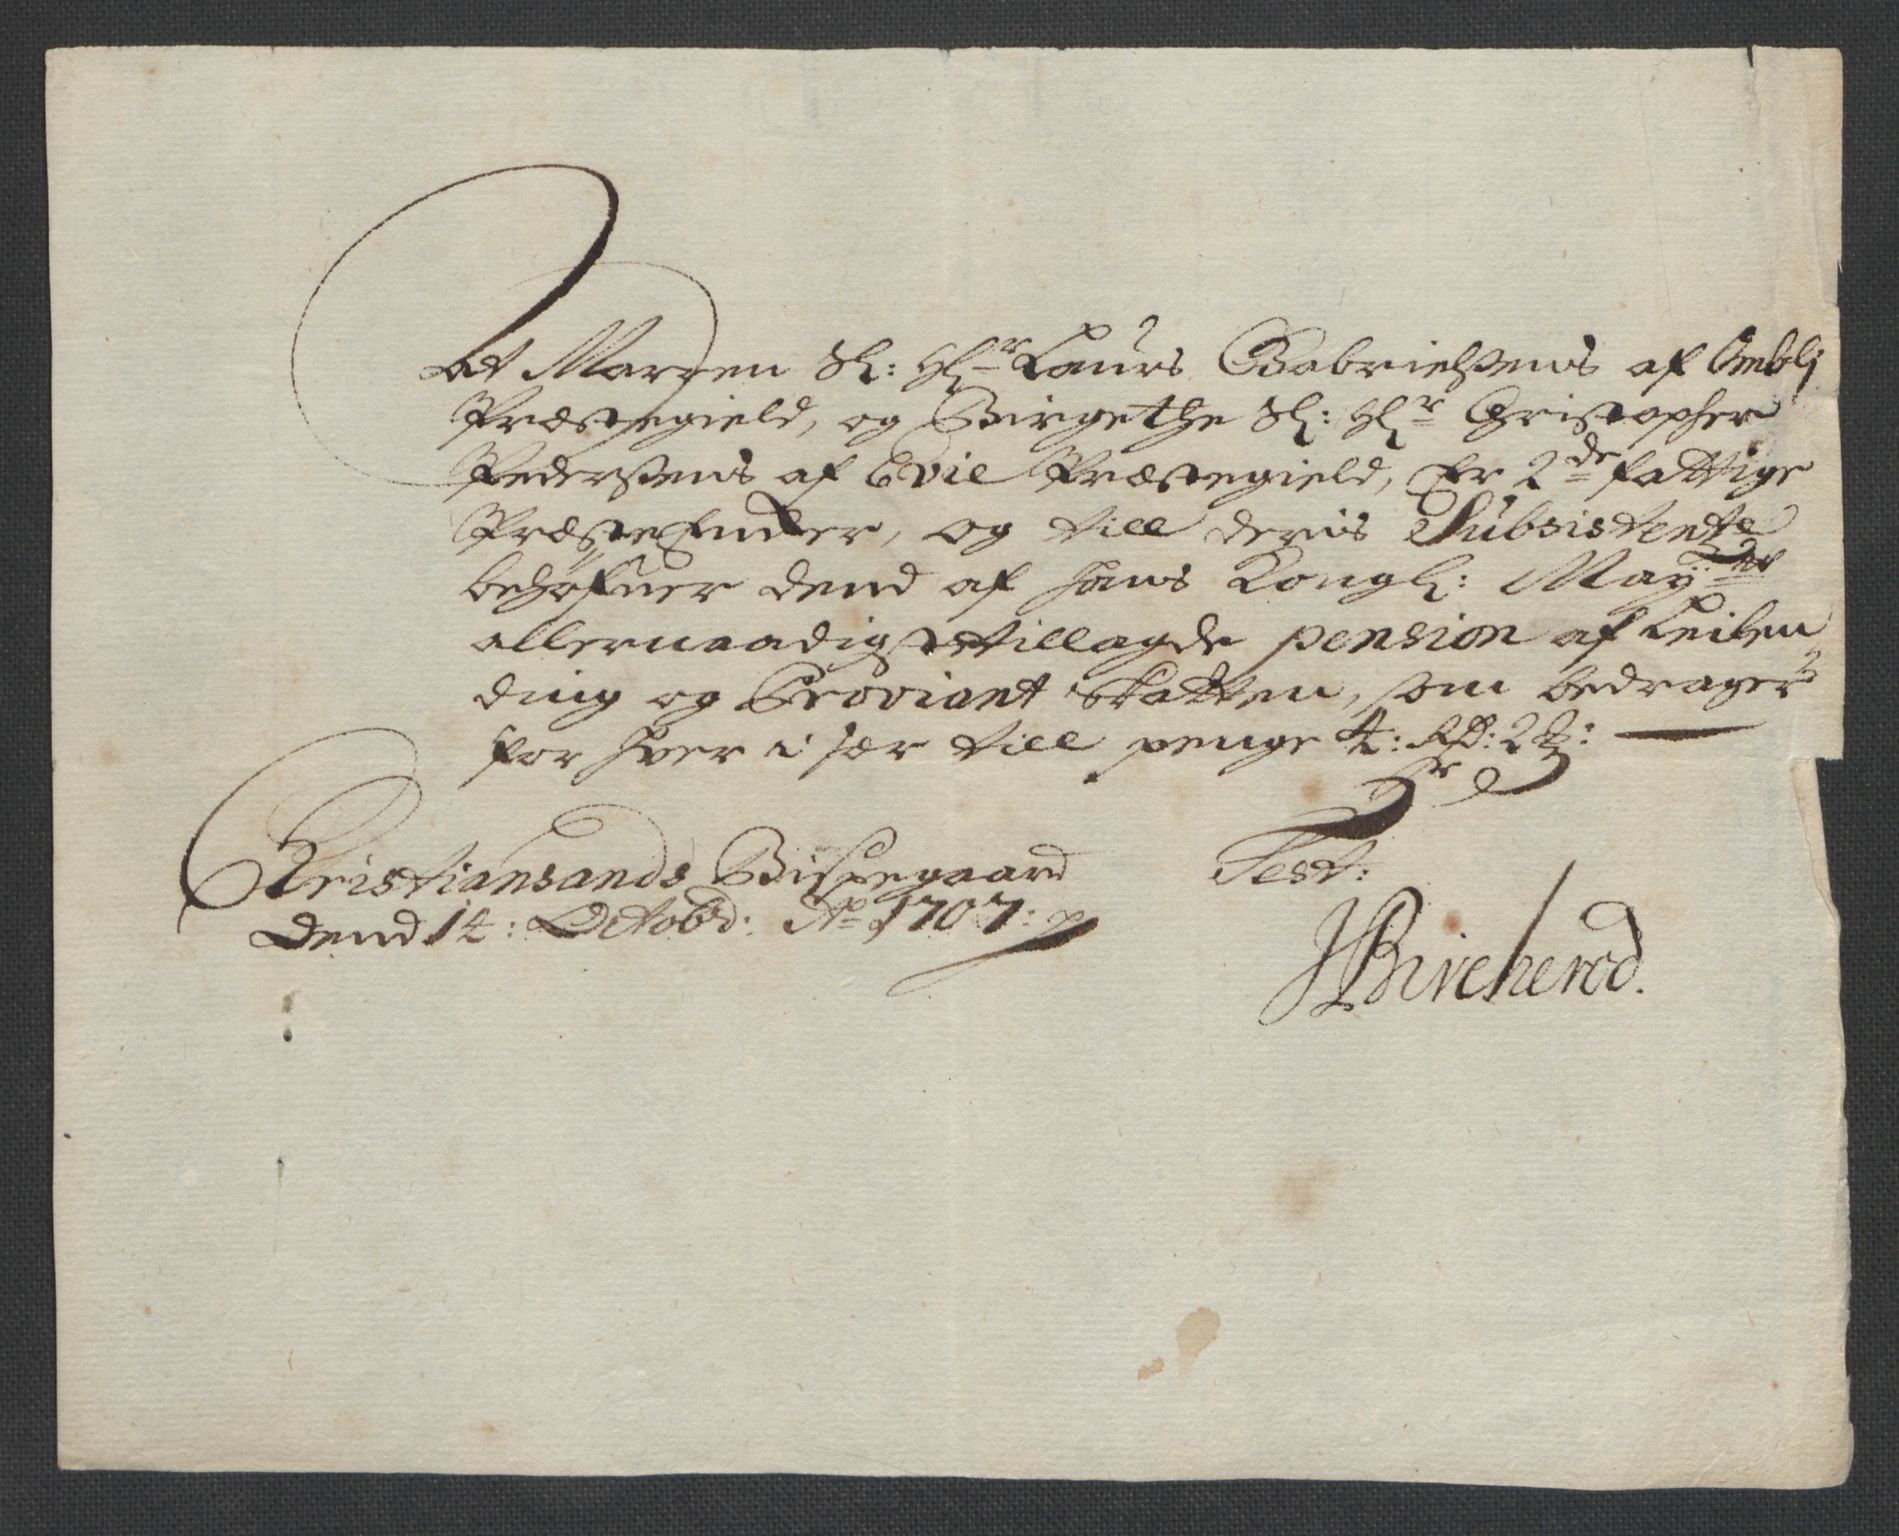 At Marren Sl: Hr Laurs Gabrielsens af Amblj
Præstegield, og Birgethe Sl: Hr Christopher
Pedersens af Evie Præstegield, Er 2de fattige
Præste Encker, og till deris Subsistentz
behøfuer dend af hans Kongl: Mayts
allernaadigst tillagde pension af Leilen-
ding og Proviant Skatten, som bedrager
for hver i sær till penge 4: Rdr: 2 ꝣ:
Christiansands Bispegaard
Dend 14: Octobr: Ao 1707:
Test:
JBircherod.